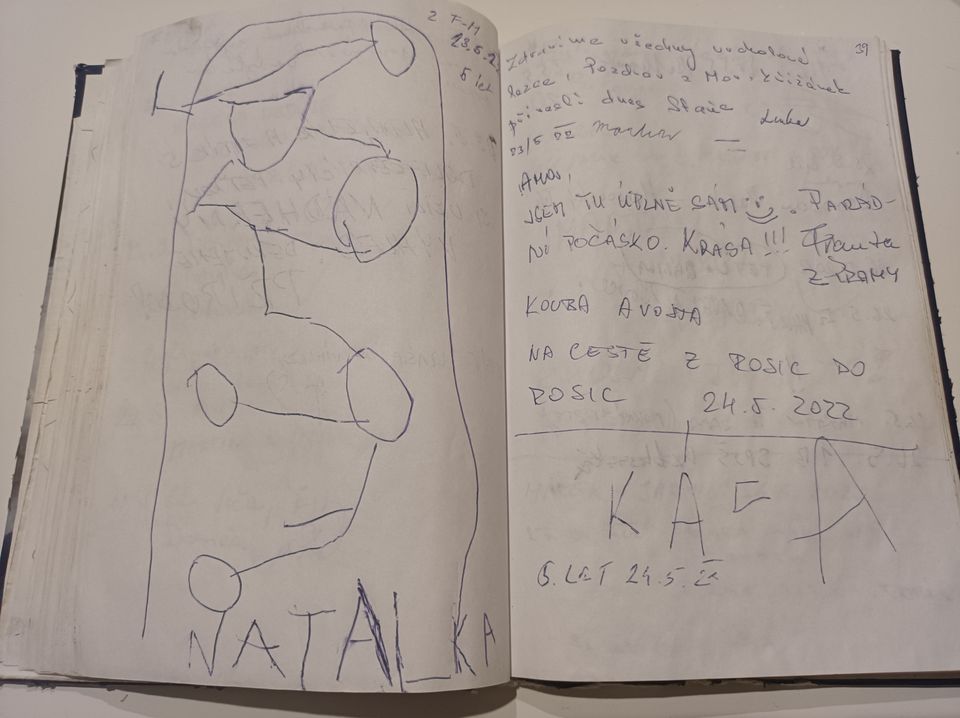 2 F-M
23.5.2
5 let
NATALKA
39
Zdravíme všechny
Pozdrav z Mor. Křižánek
přinesli dnes Staňa Luba
23/5 22
AHOJ,
JSEM TU ÚPLNĚ SÁM :). PARÁD-
NÍ POČÁSKO. KRÁSA!!! Franta
Z PRAHY
KOUBA A VOJTA
NA CESTĚ Z ROSIC DO
ROSIC 24.5. 2022
KAFA
6. LET 24.5. 22